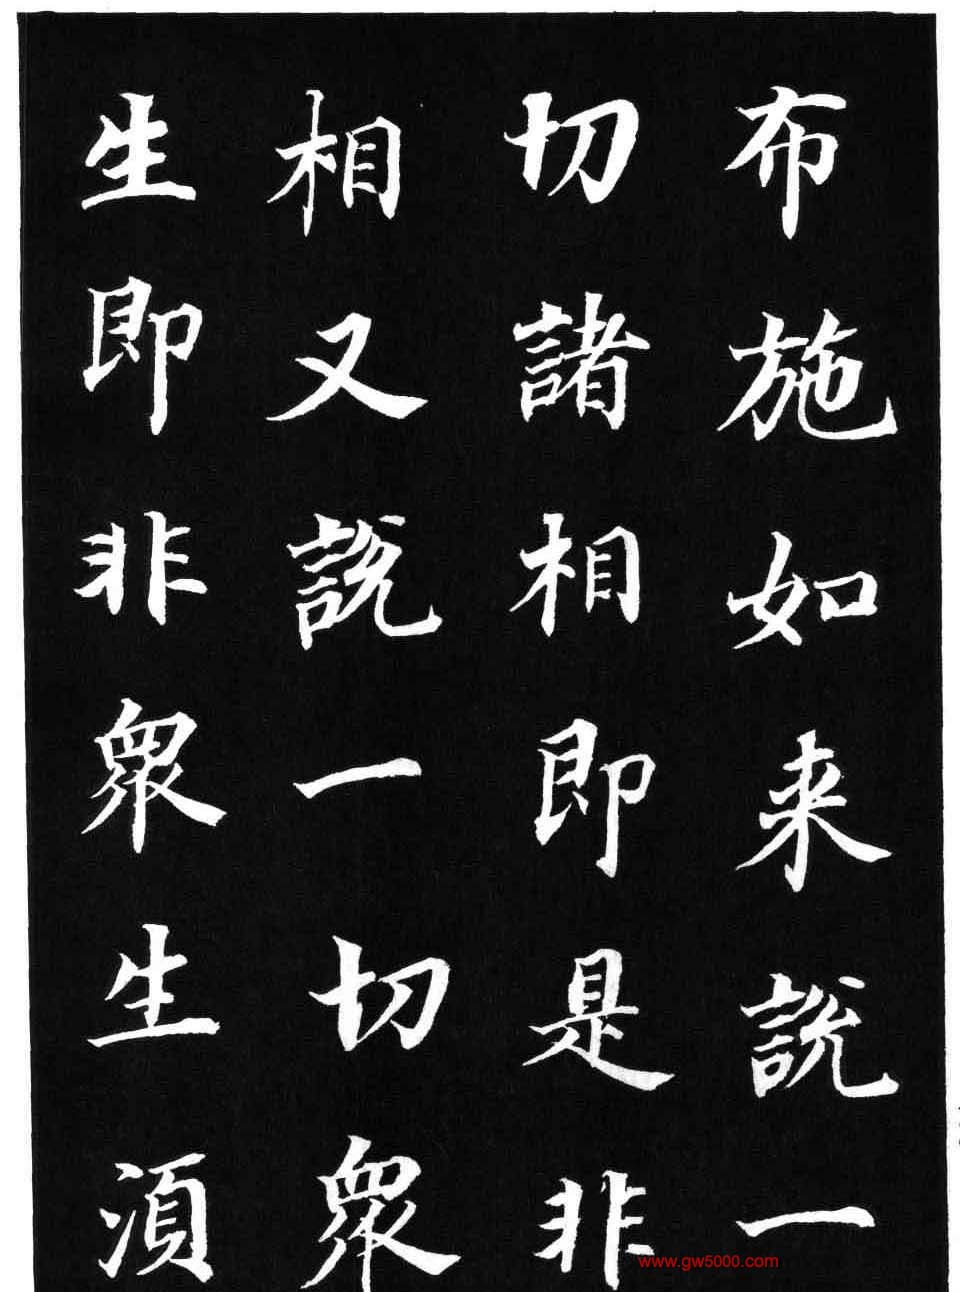 布施如来說一
切諸相即是非
相又說一切眾
生即非眾生湏
www.gw5000.com